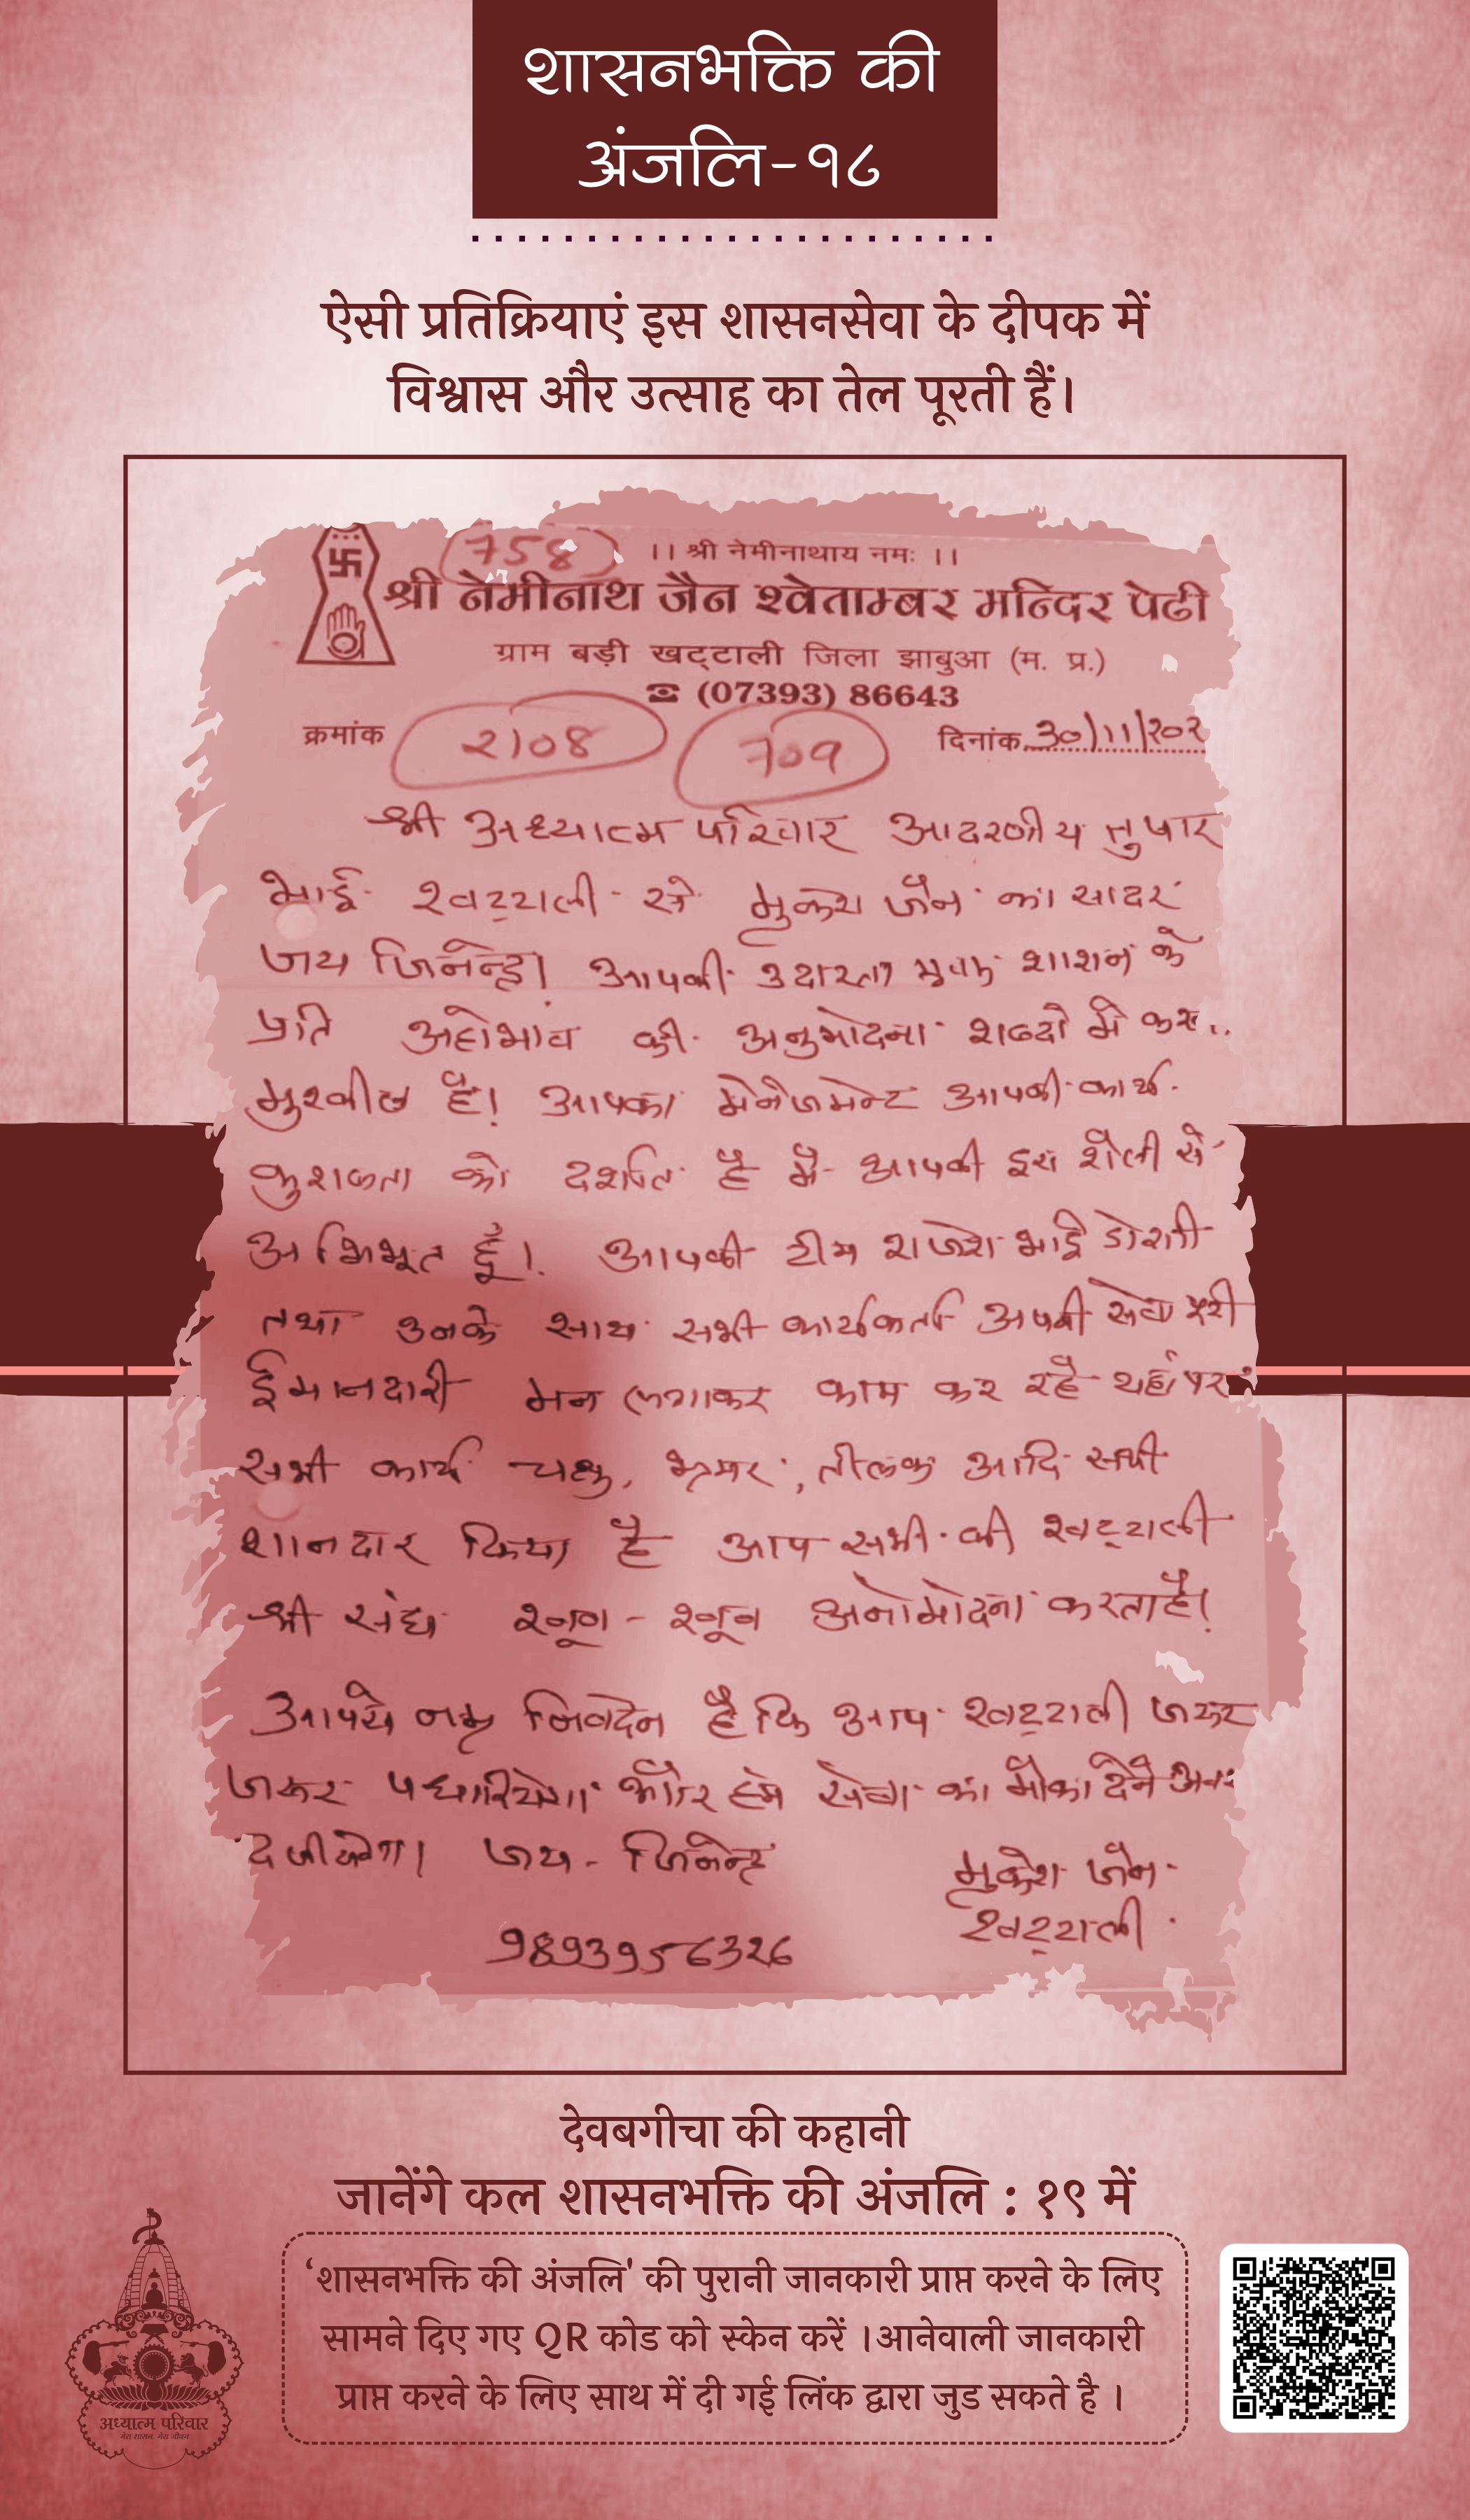 शासनभक्ति की
अंजलि-१८
ऐसी प्रतिक्रियाएं इस शासनसेवा के दीपक में
विश्वास और उत्साह का तेल पूरती हैं।
758
।। श्री नेमीनाथाय नमः ।।
श्री नेमीनाथ जैन श्वेताम्बर मन्दिर पेढी
ग्राम बड़ी खट्टाली जिला झाबुआ (म. प्र.)
☎ (07393) 86643
क्रमांक २१०८ 709 दिनांक 30/11/२०२
श्री अध्यात्म परिवार आदरणीय तुषार
भाई खट्टाली से मुकेश जैन का सादर
जय जिनेन्द्र! आपकी उदारता एवं शाशन के
प्रति अहोभाव की अनुमोदना शब्दो मे
मुश्कील है! आपका मेनेजमेन्ट आपकी कार्य
कुशलता को दर्शाता है मै आपकी इस शैली से
अभिभूत हूँ! आपकी टीम राजेश भाई डोशी
तथा उनके साथ सभी कार्यकर्ता अपनी सेवा
ईमानदारी मन लगाकर काम कर रहे यहाँ पर
सभी कार्य चक्षु, भ्रमर, तीलक आदि सभी
शानदार किया है आप सभी की खट्टाली
श्री संघ खूब - खूब अनोमोदना करता है!
आपसे नम्र निवेदन है कि आप खट्टाली जरूर
जरूर पधारियेगा और हमे सेवा का मौका देने
दजीयेगा। जय - जिनेन्द्र
मुकेश जैन
खट्टाली
9893956326
देवबगीचा की कहानी
जानेंगे कल शासनभक्ति की अंजलि : १९ में
‘शासनभक्ति की अंजलि' की पुरानी जानकारी प्राप्त करने के लिए
सामने दिए गए QR कोड को स्केन करें ।आनेवाली जानकारी
प्राप्त करने के लिए साथ में दी गई लिंक द्वारा जुड सकते है ।
अध्यात्म परिवार
मेरा शासन, मेरा जीवन